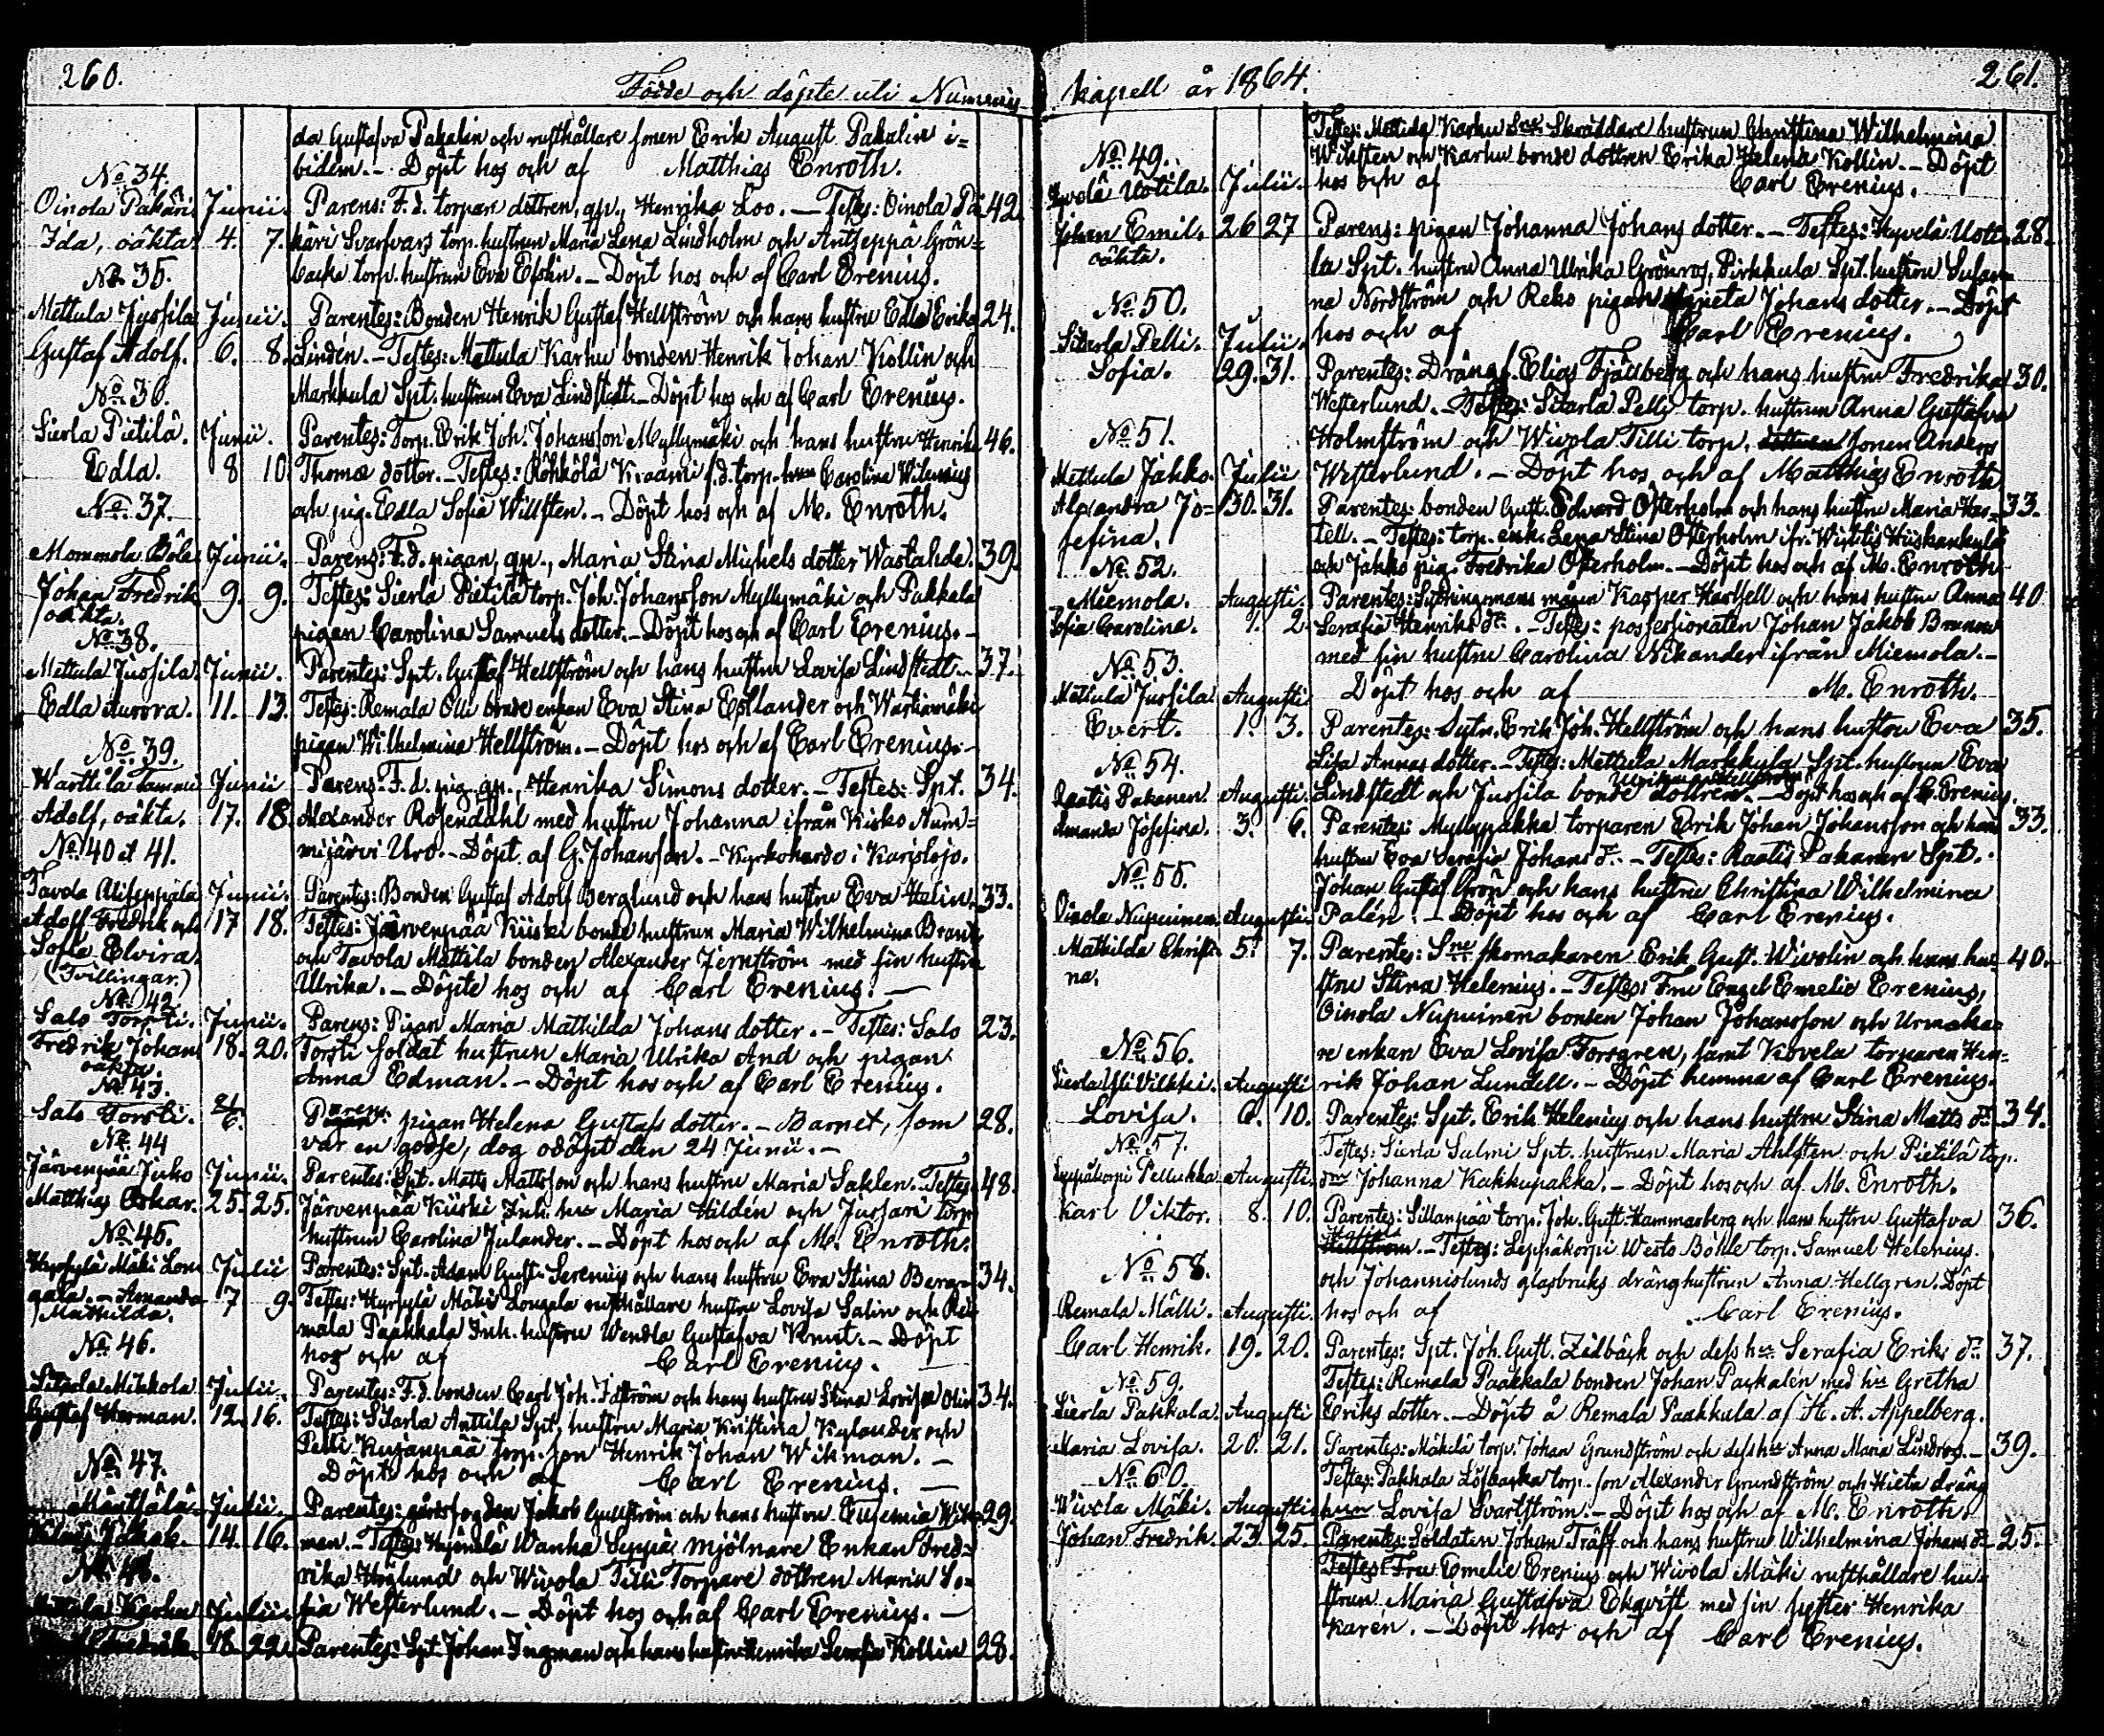 260.
Födde och döpte uti Nummis
da Gustafva Pakalin och rusthållare sonen Erik August Pakalin i=
bidem. – Döpt hos och af Matthias Enroth.
No 34.
Oinola Pakäri Junii. Parens: F. d. torpare dottren, qp., Henrika Loo. — Testes: Oinola Pa= 42.
Ida, oäkta. 4. 7. käri Svarfvars torp. hustrun Maria Lena Lindholm och Antseppä Grön=
backa torp. hustrun Eva – Döpt hos och af Carl Erenius.
No 35.
Mettula Jussila Junii. Parentes: Bonden Henrik Gustaf Hellström och hans hustru Edla Erika 24.
Gustaf Adolf. 6. 8. Lindén. – Testes: Mettula Karhu bonden Henrik Johan Kollin och
Markkula Spt. hustrun Eva Lindstedt. – Döpt hos och af Carl Erenius.
No 36.
Sierla Pietilä. Junii. Parentes: Torp. Erik Joh. Johansson Myllymäki och hans hustru Henrika 46.
Edla. 8 10. Thomæ dotter. – Testes: Röhkölä f. d. torp. Carolina Wilenius
och pig. Edla Sofia Willsten. – Döpt hos och af M. Enroth.
No 37.
Mommola Böle Junii. Parens: F. d. pigan, qp., Maria Stina Michels dotter Wastahde. 39.
Johan Fredrik 9. 9. Testes: Sierla Pietilä torp. Joh. Johansson Myllymäki och Pakkala
oäkta. pigan Carolina Samuels dotter. – Döpt hos och af Carl Erenius. –
No 38.
Mettula Jussila. Junii. Parentes: Spt. Gustaf Hellström och hans hustru Lovisa Lindstedt. – 37.
Edla Aurora. 11. 13. Testes: Remala Olli bonde enkan Eva Stina Eollander och Wartiamäki
pigan Wilhelmina Hellström. – Döpt hos och af Carl Erenius. –
No 39.
Warttila Tammi Junii Parens: F. d. pig. qp., Henrika Simons dotter. – Testes: Spt. 34.
Adolf, oäkta. 17. 18. Alexander Rosendahl med hustru Johanna ifrån Kisko Num=
mijärvi Uro. – Döpt af G. Johansson. – Kyrkoherde i Karislojo.
No 40 et 41.
Tavola Aliseppälä Junii. Parentes: Bonden Gustaf Adolf Berglund och hans hustru Eva Halin. 33.
Adolf Fredrik och 17 18. Testes: Järvenpää Kiiski bonde hustrun Maria Wilhelmina
Sofia Elvira. och Tavola Mattila bonden Alexander Jernström med sin hustru
(Tvillingar.) Ulrika. – Döpte hos och af Carl Erenius. —
No 42
Salo Torsti. Junii. Parens: Pigan Maria Mathilda Johans dotter. – Testes: Salo 23.
Fredrik Johan 18. 20. Torsti soldat hustrun Maria Ulrika And och pigan
oäkta. Anna Edman. – Döpt hos och af Carl Erenius.
No 43.
Salo Torsti. Parens: pigan Helena Gustafs dotter. – Barnet, som 28.
var en gosse, dog odöpt den 24 Junii. –
No 44
Järvenpää Juho Junii. Parentes: Spt. Matts Mattsson och hans hustru Maria Saklen. – Testes 48.
Matthias Oskar. 25. 25. Järvenpää Kiiski Inh. hu Maria Hildén och Jussari torp
hustrun Carolina Julander. – Döpt hos och af M. Enroth.
No 45.
Hyrsylä Mäki Lon Julii Parentes: Spt. Adam Gust. Serenius och hans hustru Eva Stina Berg 34.
gala. – Amanda 7 9. Testes: Hyrsylä Mäki Longala rusthållare hustru Lovisa Salin och Re
Mathilda. mala Paakkala Inh. hustru Wendla Gustafva Knut. – Döpt
hos och af Carl Erenius. —
No 46.
Mikkola Julii. Parentes: F. d. bonden Carl Joh. Idström och hans hustru Stina Lovisa 34.
Gustaf Herman. 12. 16. Testes: Sitarla Anttila Spt. hustru Maria Kristina Kylander och
Pelli Kujanpää torp. son Henrik Johan Wikman. –
Döpt hos och af Carl Erenius. —
No 47.
Julii. Parentes: gårdsfogden Jakob Gullström och hans hustru Eufemia Wik 29.
14. 16. man. – Testes: Wanha Seppä mjölnare Enkan Fred=
rika Höglund och Wivola Tilli Torpare dottren Maria So=
No 48.
Karhu Julii. fia Westerlund. – Döpt hos och af Carl Erenius. —
Fredrik. 18. 22. Parentes: Spt. Johan Ingman och hans hustru Henrika Serafia Kollin 28.
kapell år 1864. 261.
Testes: Mettula Karhu Skräddare hustrun Christina Wilhelmina
Willsten och Karhu bonde dottren Erika Helena Kollin. – Döpt
No 49. hos och af Carl Erenius.
Hyvelä Uotila. Julii.
Johan Emil. 26 27 Parens: pigan Johanna Johans dotter. – Testes: Hyvelä Uoti 28.
oäkta. la Spt. hustru Anna Ulrika Grönros, Pirkkula Spt. hustru Susan=
na Nordström och Reko pigan Johans dotter. – Döpt
No 50. hos och af Carl Erenius.
Sitarla Pelli. Julii.
Sofia. 29. 31. Parentes: Dräng. Elias Fjällberg och hans hustru Fredrika 30.
Westerlund. – Testes: Sitarla Pelly torp. hustrun Anna Gustafva
No 51. Holmström och Wivola Tilli torp. sonen Anders
Mettula Jakko. Julii Westerlund. – Döpt hos och af Matthias Enroth
Alexandra Jo= 30. 31. Parentes: bonden Gust. Edvard Österholm och hans hustru Maria Has= 33.
sefina. tell. – Testes: torp. enk. Lena Stina Österholm ifr. Wihtis Hiiskankula
No 52. och Jakko pig. Fredrika Österholm. – Döpt hos och af M. Enroth
Miemola. Augusti. Parentes: Sytningsmans mågen Kasper Karsell och hans hustru Anna 40
Sofia Carolina. 1. 2. Serafia Henriks dr. – Testes: possessionaten Johan Jakob
No 53. med sin hustru Carolina Nikander ifrån Miemola. –
Mettula Jussila. Augusti Döpt hos och af M. Enroth.
Evert. 1. 3. Parentes: Sytn. Erik Joh. Hellström och hans hustru Eva 35.
No 54. Lisa Annas dotter. – Testes: Mettula Markkula Spt. hustrun Eva
Raatis Pakanen. Augusti. Lindstedt och Jussila bonde dottren. – Döpt hos och af C. Erenius.
Amanda Josefina. 3. 6. Parentes: Myllypakka torparen Erik Johan Johansson och hans 33.
hustru Eva Serafia Johans dr. – Testes: Raatis Pakanen Spt.
No 55. Johan Gustaf Grön och hans hustru Christina Wilhelmina
Oinola Nupuinen Augusti Palén. – Döpt hos och af Carl Erenius.
Mathilda Christi 5. 7. Parentes: Sne skomakaren Erik Gust. Wivolin och hans hu= 40.
na. stru Stina Helenius. – Testes: Fru Engel Emelie Erenius,
Oinola Nupuinen bonden Johan Johansson och Urmaka=
No 56. re enkan Eva Lovisa Forsgren, samt Kovela torparen Hen=
Sierla Yli Vilkki. Augusti rik Johan Lundell. – Döpt hemma af Carl Erenius.
Lovisa. 6. 10. Parentes: Spt. Erik Helenius och hans hustru Stina Matts dr 34.
No 57. Testes: Sierla Salmi Spt. hustrun Maria Ahlsten och Pietilä torp.
Leppäkorpi Pellukka Augusti. dr Johanna Kakkupakka. – Döpt hos och af M. Enroth.
Karl Viktor. 8. 10. Parentes: Sillanpää torp. Joh. Gust. Hammarberg och hans hustru Gustafva 36.
Hellström. – Testes: Leppäkorpi Westo Böhle torp. Samuel Helenius
No 58. och Johannislunds glasbruks dränghustrun Anna Hellgren. Döpt
Remala Mälli. Augusti. hos och af Carl Erenius.
Carl Henrik. 19. 20. Parentes: Spt. Joh. Gust. Zidbäck och dess hu Serafia Eriks dr 37.
No 59. Testes: Remala Paakkala bonden Johan Packalén med hu Gretha
Sierla Pakkala. Augusti Eriks dotter. – Döpt å Remala Paakkula af H. A. Appelberg.
Maria Lovisa. 20. 21. Parentes: Mäkilä torp. Johan Grundström och dess hu Anna Maria Lindros. – 39.
No 60. Testes: Pakkala Löfbacka torp. son Alexander Grundström och Hieta dräng
Wivola Mäki. Augusti. hun Lovisa Svartström. – Döpt hos och af M. Enroth.
Johan Fredrik. 23. 25. Parentes: Soldaten Johan Träff och hans hustru Wilhelmina Johans dr 25.
Testes: Fru Emelie Erenius och Wivola Mäki rusthållare hu=
strun Maria Gustafva Ekqvist med sin syster Henrika
Karén. – Döpt hos och af Carl Erenius.